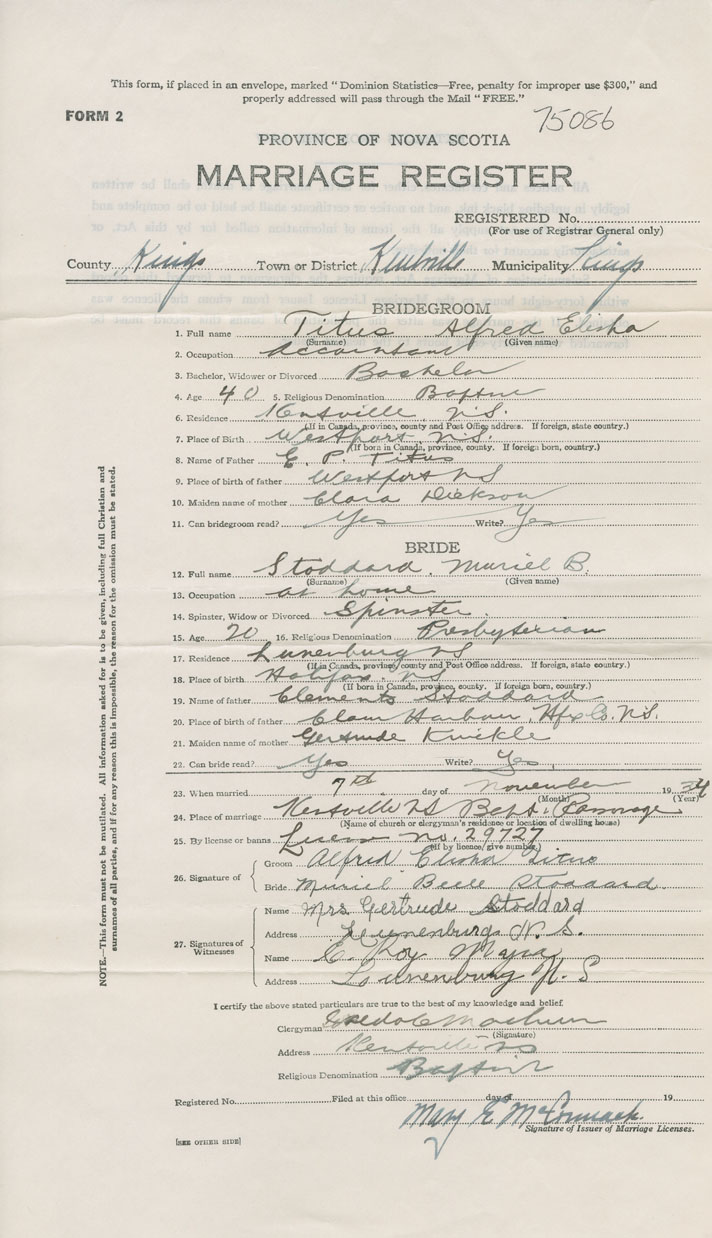 This form, if placed in an envelope, marked "Dominion Statistics—Free, penalty for improper use $300," and
properly addressed will pass through the Mail "FREE."
FORM 2
75086
PROVINCE OF NOVA SCOTIA
MARRIAGE REGISTER
REGISTERED No.
(For use of Registrar General only)
County Kings Town or District Kentville Municipality Kings
BRIDEGROOM
1. Full name Titus Alfred Elisha
(Surname) (Given name)
2. Occupation Accountant
3. Bachelor, Widower or Divorced Bachelor
4. Age 40 5. Religious Denomination Baptist
6. Residence Kentville N.S.
(If in Canada, province, county and Post Office address. If foreign, state country.)
7. Place of Birth Westport N.S.
(If born in Canada, province, county. If foreign born, country.)
8. Name of Father E. P. Titus
9. Place of birth of father Westport NS
10. Maiden name of mother Clara Dickson
11. Can bridegroom read? Yes Write? Yes
BRIDE
12. Full name Stoddard, Muriel B.
(Surname) (Given name)
13. Occupation at home
14. Spinster, Widow or Divorced Spinster
15. Age 20 16. Religious Denomination Presbyterian
17. Residence Lunenburg NS
(If in Canada, province, county and Post Office address. If foreign, state country.)
18. Place of birth Halifax NS
(If born in Canada, province, county. If foreign born, country.)
19. Name of father Clements Stoddard
20. Place of birth of father Clam Harbour, Hfx Co. N.S.
21. Maiden name of mother Gertrude Knickle
22. Can bride read? Yes Write? Yes
23. When married 7th day of November 1934
(Month) (Year)
24. Place of marriage Kentville NS Bapt. Parsonage
(Name of church or clergyman's residence or location of dwelling house)
25. By license or banns no. 29727
(If by licence, give number.)
26. Signature of
Groom Alfred Elisha Titus
Bride Muriel Belle Stoddard
27. Signatures of Witnesses
Name Mrs Gertrude Stoddard
Address Lunenburg N. S.
Name C. Roy
Address Lunenburg N. S
I certify the above stated particulars are true to the best of my knowledge and belief.
Clergyman
(Signature)
Address Kentville NS
Religious Denomination Baptist
Registered No. Filed at this office day of 19
Mary E McCormack
Signature of Issuer of Marriage Licenses.
[SEE OTHER SIDE]
NOTE.—This form must not be mutilated. All information asked for is to be given, including full Christian and
surnames of all parties, and if for any reason this is impossible, the reason for the omission must be stated.